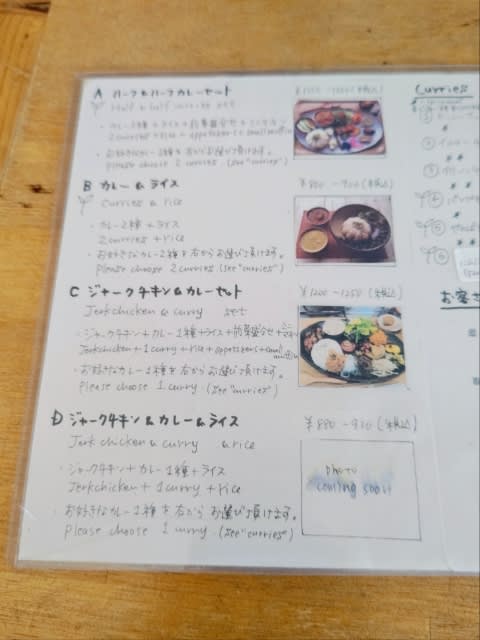 A ハーフ&ハーフカレーセット
Half & half curries set
・カレー2種+ライス+前菜盛合せ+
2 curries + rice + appetizers + small muffin
・お好きなカレー2種を右からお選び頂けます。
please choose 2 curries. (see "curries")
B カレー&ライス ¥800-900(税込)
Curries & rice
・カレー2種+ライス
2 curries + rice
・お好きなカレー2種を右からお選び頂けます。
please choose 2 curries (see "curries")
C ジャークチキン&カレーセット ¥1200-1250(税込)
Jerk chicken & curry set
・ジャークチキン+カレー1種+ライス+前菜盛合せ+
Jerk chicken + 1 curry + rice + appetizers + small muffin
・お好きなカレー1種を右からお選び頂けます。
please choose 1 curry. (see "curries")
D ジャークチキン&カレー&ライス (税込)
Jerk chicken & curry & rice
・ジャークチキン+カレー1種+ライス
Jerk chicken + 1 curry + rice
・お好きなカレー1種を右からお選び頂けます。
please choose 1 curry. (see "curries")
photo
coming soon
Curries
①
②
③
④
⑤
⑥
お客さ